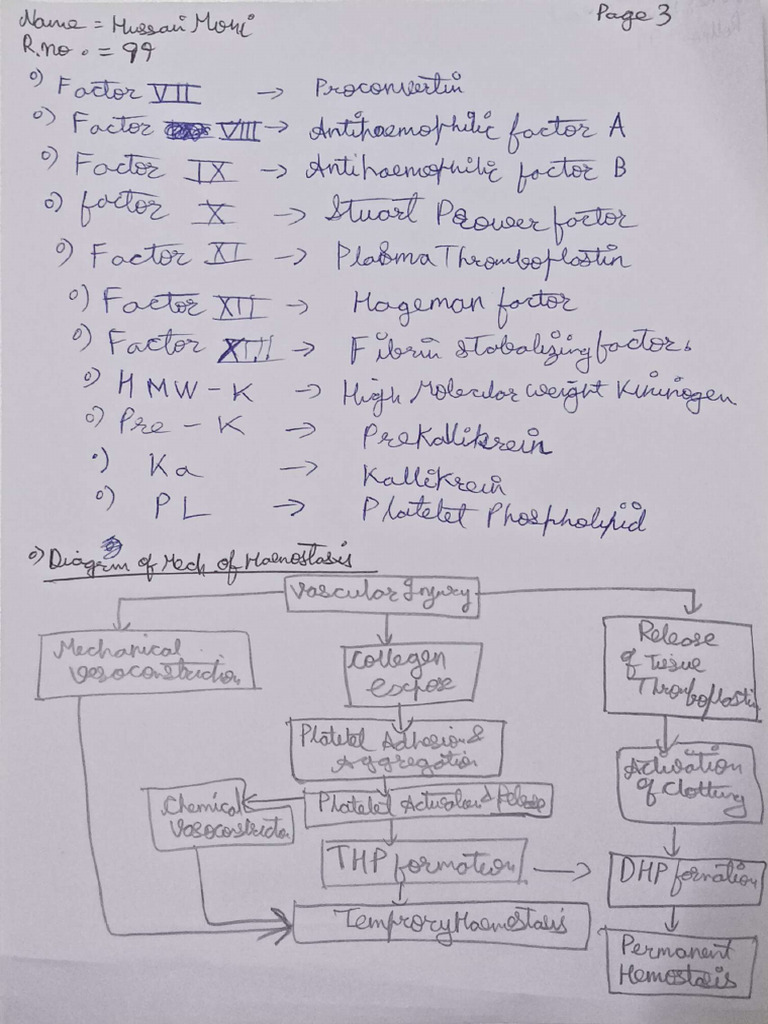 Name = Hussain Mohi
Page 3
R.no. = 94
Factor VII → Proconvertin
Factor VIII → Antihaemophilic factor A
Factor IX → Antihaemophilic factor B
factor X → Stuart Prower factor
Factor XI → Plasma Thromboplastin
Factor XII → Hageman factor
Factor XIII → Fibrin Stabalizing factor.
HMW-K → High Molecular weight Kininogen
Pre-K → PreKallikrein
Ka → Kallikrein
PL → Platelet Phospholipid
Diagram of Mech of Haemostasis
Vascular Injury
Mechanical
Vasoconstriction
Collagen
Expose
Release
of Tissue
Thromboplastin
Platelet Adhesion &
Aggregation
Activation
of Clotting
Chemical
Vasoconstrictor
Platelet Activation & Release
THP formation → DHP formation
Temprory Haemostasis
Permanent
Hemostasis